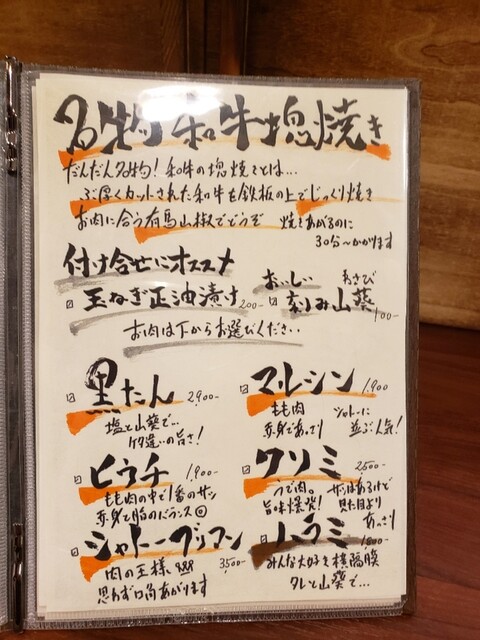 名物 和牛塊焼き
だんだん名物！和牛の塊焼きとは…
ぶ厚くカットされた和牛を鉄板の上でじっくり焼き
お肉に合う有馬山椒でどうぞ 焼きあがるのに
30分〜かかります
付け合せにオススメ
玉ねぎ正油漬け 200-
おいしい わさび
刻み山葵 100-
お肉は下からお選びください..
黒たん 2,900-
塩と山葵で…
ケタ違いの旨さ！
マルシン 1,900
もも肉
赤身であっさり
シャトーに
並ぶ人気！
ヒウチ 1,900-
もも肉の中で1番のサシ
赤身と脂のバランス◎
クリミ 2,500-
うで肉。
旨味爆発！
サシはあるけど
見た目より
あっさり
シャトーブリアン 3,500-
肉の王様
思わず口角あがります
ハラミ 1,800-
みんな大好き横隔膜
タレと山葵で…